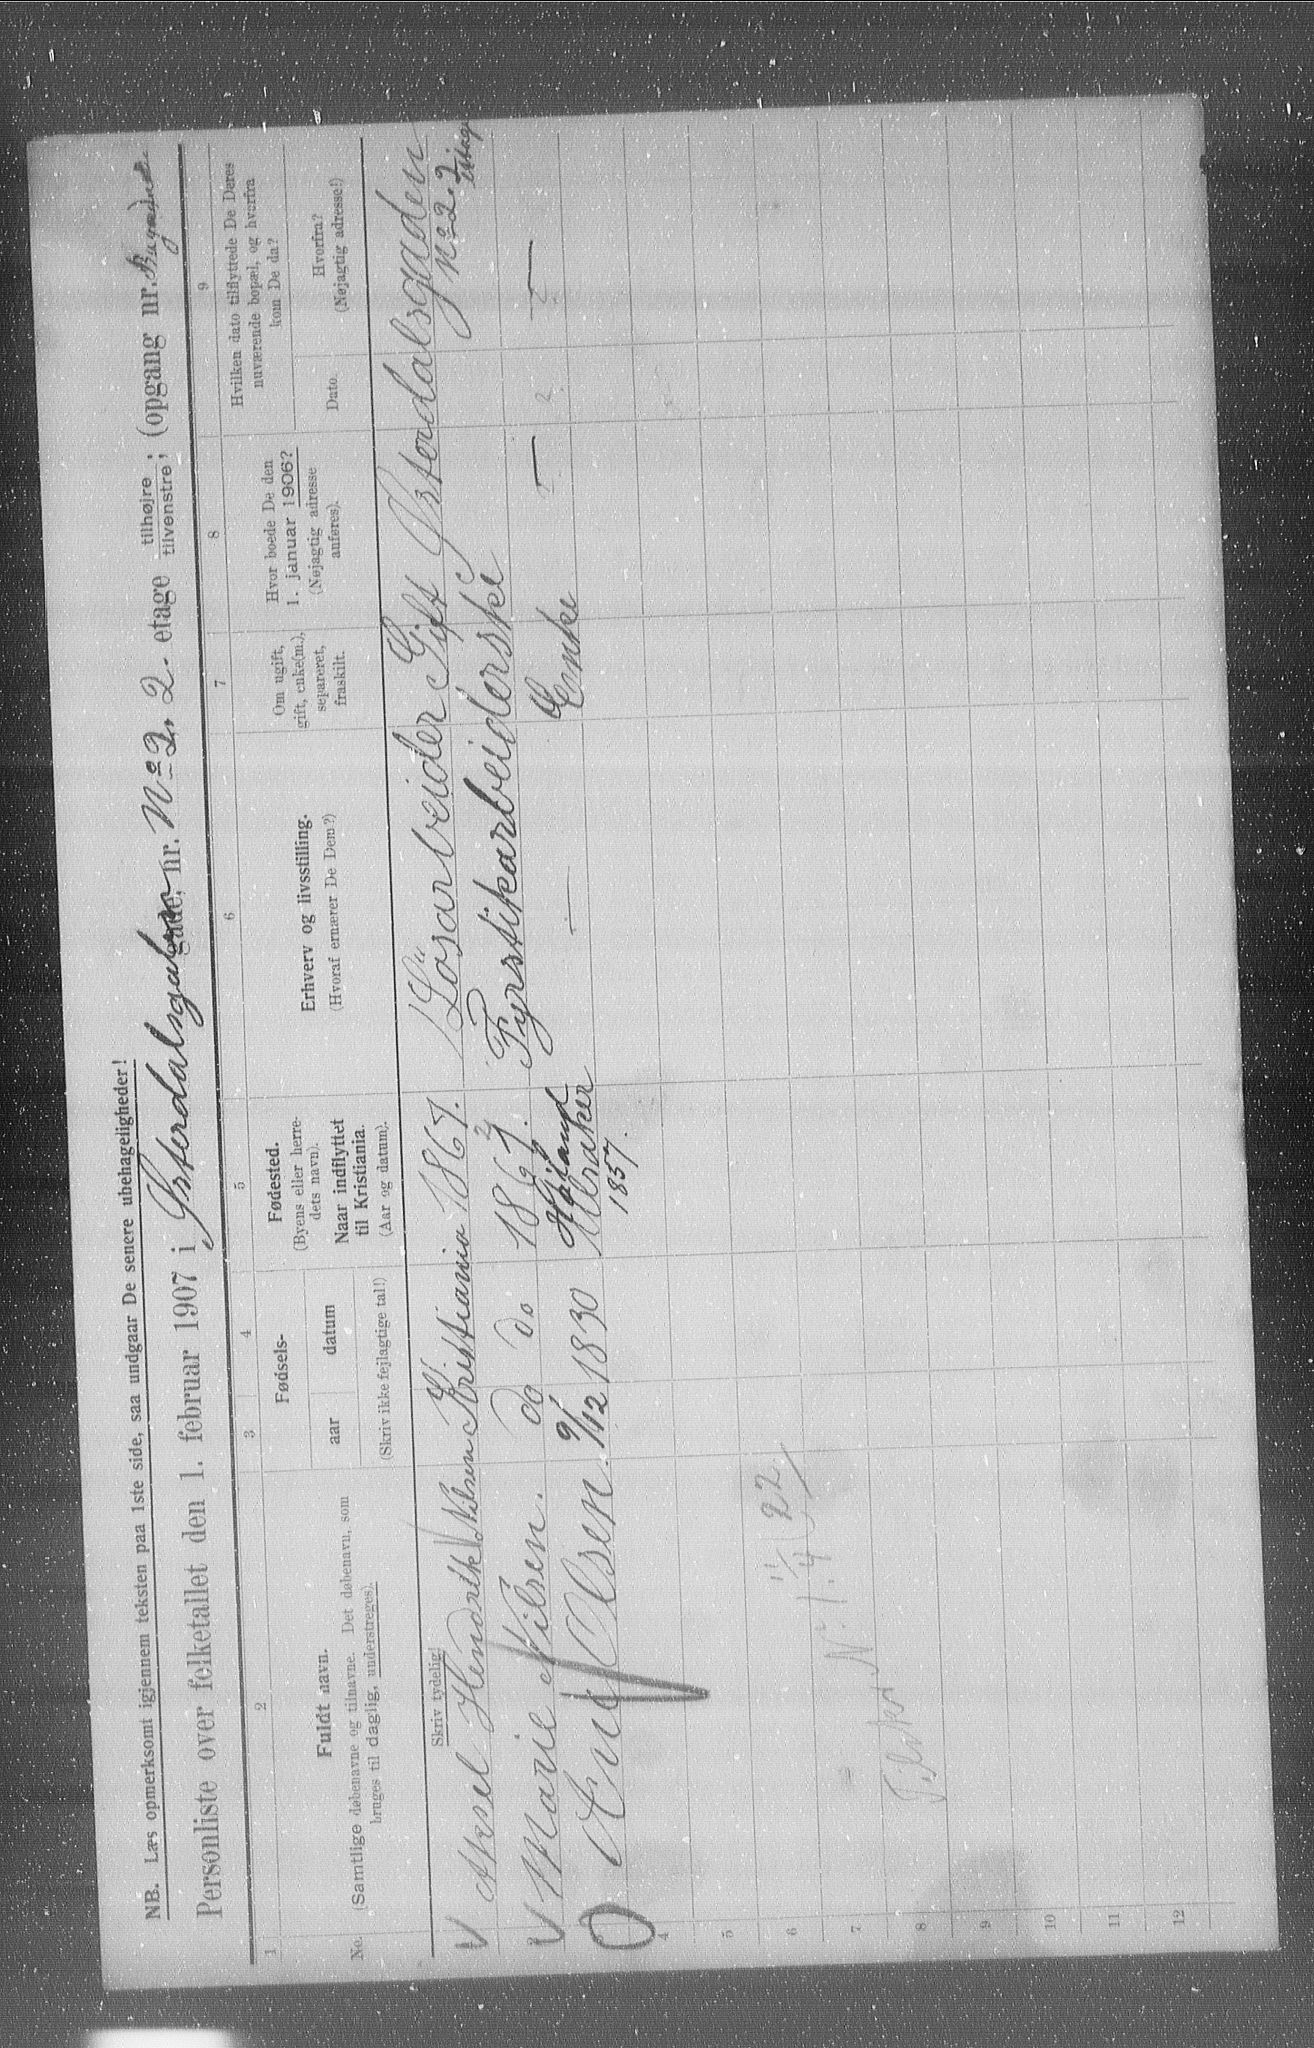 NB. Læs opmerksomt igjennem teksten paa 1ste side, saa undgaar De senere ubehageligheder!
Personliste over folketallet den 1. februar 1907 i Østerdalsgaden gade, nr. No 2. 2. etage tilhøjre, tilvenstre, (opgang nr.
1 2 3 4 5 6 7 8 9
No.
Fuldt navn.
(Samtlige døbenavne og tilnavne. Det døbenavn, som
bruges til daglig, understreges).
Fødsels-
aar datum
(Skriv ikke fejlagtige tal!)
Fødested.
(Byens eller herre-
dets navn).
Naar indflyttet
til Kristiania.
(Aar og datum).
Erhverv og livsstilling.
(Hvoraf ernærer De Dem?)
Om ugift,
gift, enke(m.),
separeret,
fraskilt.
Hvor boede De den
1. januar 1906?
(Nøjagtig adresse
anføres).
Hvilken dato tilflyttede De Deres
nuværende bopæl, og hvorfra
kom De da?
Dato.
Hvorfra?
(Nøjagtig adresse!)
Skriv tydelig!
Axsel Hendrik Nilsen Kristiania 1867. Løsarbeider Gift Østerdalsgaden No 2. 2
Marie Nilsen. do do 1867. Fyrstikarbeiderske
Olsen. 9/12 1830 Høland Enke
1857.
4
5
6
7
8
9
10
11
12
22